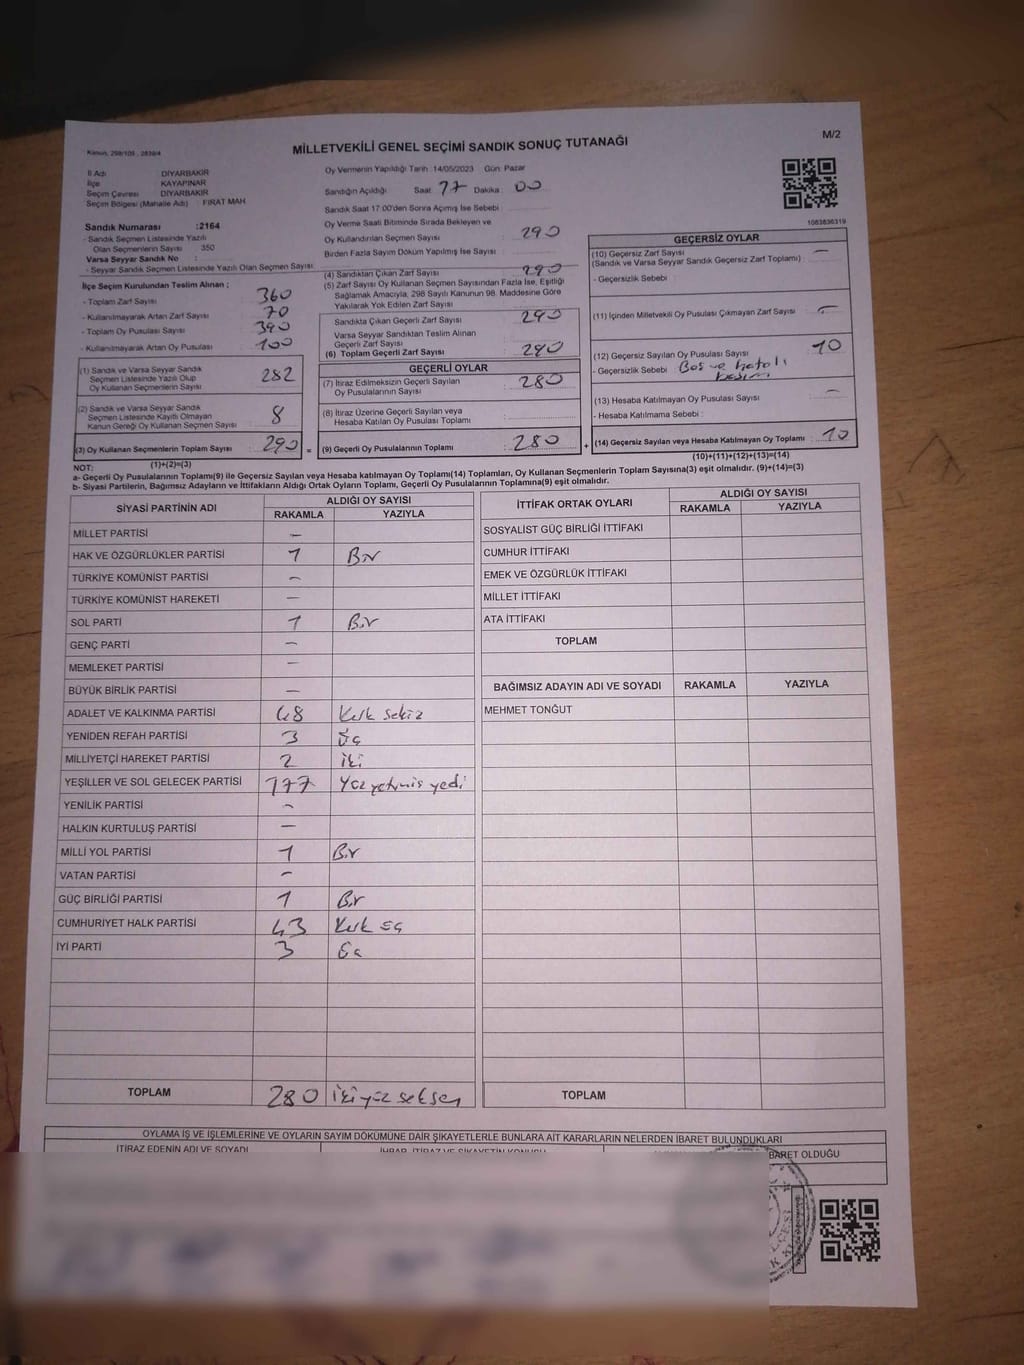 Kanun, 298/105 , 2839/4
MİLLETVEKİLİ GENEL SEÇİMİ SANDIK SONUÇ TUTANAĞI
M/2
İl Adı DİYARBAKIR
İlçe KAYAPINAR
Seçim Çevresi DİYARBAKIR
Seçim Bölgesi (Mahalle Adı) : FIRAT MAH
Oy Vermenin Yapıldığı Tarih :14/05/2023 Gün: Pazar
Sandığın Açıldığı Saat 17 Dakika : 00
Sandık Saat 17:00'den Sonra Açımış İse Sebebi :
Oy Verme Saati Bitiminde Sırada Bekleyen ve
Oy Kullandırılan Seçmen Sayısı 290
Birden Fazla Sayım Döküm Yapılmış İse Sayısı :
1083836319
Sandık Numarası :2164
- Sandık Seçmen Listesinde Yazılı
Olan Seçmenlerin Sayısı 350
Varsa Seyyar Sandık No :
- Seyyar Sandık Seçmen Listesinde Yazılı Olan Seçmen Sayısı:
İlçe Seçim Kurulundan Teslim Alınan ;
- Toplam Zarf Sayısı 360
- Kullanılmayarak Artan Zarf Sayısı 70
- Toplam Oy Pusulası Sayısı 390
- Kullanılmayarak Artan Oy Pusulası 100
(1) Sandık ve Varsa Seyyar Sandık
Seçmen Listesinde Yazılı Olup
Oy Kullanan Seçmenlerin Sayısı 282
(2) Sandık ve Varsa Seyyar Sandık
Seçmen Listesinde Kayıtlı Olmayan
Kanun Gereği Oy Kullanan Seçmen Sayısı 8
(3) Oy Kullanan Seçmenlerin Toplam Sayısı 290 =
(1)+(2)=(3)
(4) Sandıktan Çıkan Zarf Sayısı 290
(5) Zarf Sayısı Oy Kullanan Seçmen Sayısından Fazla İse, Eşitliği
Sağlamak Amacıyla, 298 Sayılı Kanunun 98. Maddesine Göre
Yakılarak Yok Edilen Zarf Sayısı
Sandıkta Çıkan Geçerli Zarf Sayısı 290
Varsa Seyyar Sandıktan Teslim Alınan
Geçerli Zarf Sayısı
(6) Toplam Geçerli Zarf Sayısı 290
GEÇERLİ OYLAR
(7) İtiraz Edilmeksizin Geçerli Sayılan
Oy Pusulalarının Sayısı 280
(8) İtiraz Üzerine Geçerli Sayılan veya
Hesaba Katılan Oy Pusulası Toplamı
(9) Geçerli Oy Pusulalarının Toplamı 280 +
GEÇERSİZ OYLAR
(10) Geçersiz Zarf Sayısı —
(Sandık ve Varsa Seyyar Sandık Geçersiz Zarf Toplamı) :
- Geçersizlik Sebebi :
(11) İçinden Milletvekili Oy Pusulası Çıkmayan Zarf Sayısı —
(12) Geçersiz Sayılan Oy Pusulası Sayısı 10
- Geçersizlik Sebebi Boş ve hatalı
(13) Hesaba Katılmayan Oy Pusulası Sayısı —
- Hesaba Katılmama Sebebi :
(14) Geçersiz Sayılan veya Hesaba Katılmayan Oy Toplamı 10
(10)+(11)+(12)+(13)=(14)
NOT:
a- Geçerli Oy Pusulalarının Toplamı(9) ile Geçersiz Sayılan veya Hesaba katılmayan Oy Toplamı(14) Toplamları, Oy Kullanan Seçmenlerin Toplam Sayısına(3) eşit olmalıdır. (9)+(14)=(3)
b- Siyasi Partilerin, Bağımsız Adayların ve İttifakların Aldığı Ortak Oyların Toplamı, Geçerli Oy Pusulalarının Toplamına(9) eşit olmalıdır.
SİYASİ PARTİNİN ADI ALDIĞI OY SAYISI
RAKAMLA YAZIYLA
MİLLET PARTİSİ —
HAK VE ÖZGÜRLÜKLER PARTİSİ 1 Bir
TÜRKİYE KOMÜNİST PARTİSİ —
TÜRKİYE KOMÜNİST HAREKETİ —
SOL PARTİ 1 Bir
GENÇ PARTİ —
MEMLEKET PARTİSİ —
BÜYÜK BİRLİK PARTİSİ —
ADALET VE KALKINMA PARTİSİ 48 Kırk sekiz
YENİDEN REFAH PARTİSİ 3 Üç
MİLLİYETÇİ HAREKET PARTİSİ 2 iki
YEŞİLLER VE SOL GELECEK PARTİSİ 177 Yüz yetmiş yedi
YENİLİK PARTİSİ —
HALKIN KURTULUŞ PARTİSİ —
MİLLİ YOL PARTİSİ 1 Bir
VATAN PARTİSİ —
GÜÇ BİRLİĞİ PARTİSİ 1 Bir
CUMHURİYET HALK PARTİSİ 43 Kırk üç
İYİ PARTİ 3 Üç
TOPLAM 280 İkiyüz seksen
İTTİFAK ORTAK OYLARI ALDIĞI OY SAYISI
RAKAMLA YAZIYLA
SOSYALİST GÜÇ BİRLİĞİ İTTİFAKI
CUMHUR İTTİFAKI
EMEK VE ÖZGÜRLÜK İTTİFAKI
MİLLET İTTİFAKI
ATA İTTİFAKI
TOPLAM
BAĞIMSIZ ADAYIN ADI VE SOYADI RAKAMLA YAZIYLA
MEHMET TONĞUT
TOPLAM
OYLAMA İŞ VE İŞLEMLERİNE VE OYLARIN SAYIM DÖKÜMÜNE DAİR ŞİKAYETLERLE BUNLARA AİT KARARLARIN NELERDEN İBARET BULUNDUKLARI
İTİRAZ EDENİN ADI VE SOYADI İHBAR, İTİRAZ VE ŞİKAYETİN KONUSU BARET OLDUĞU